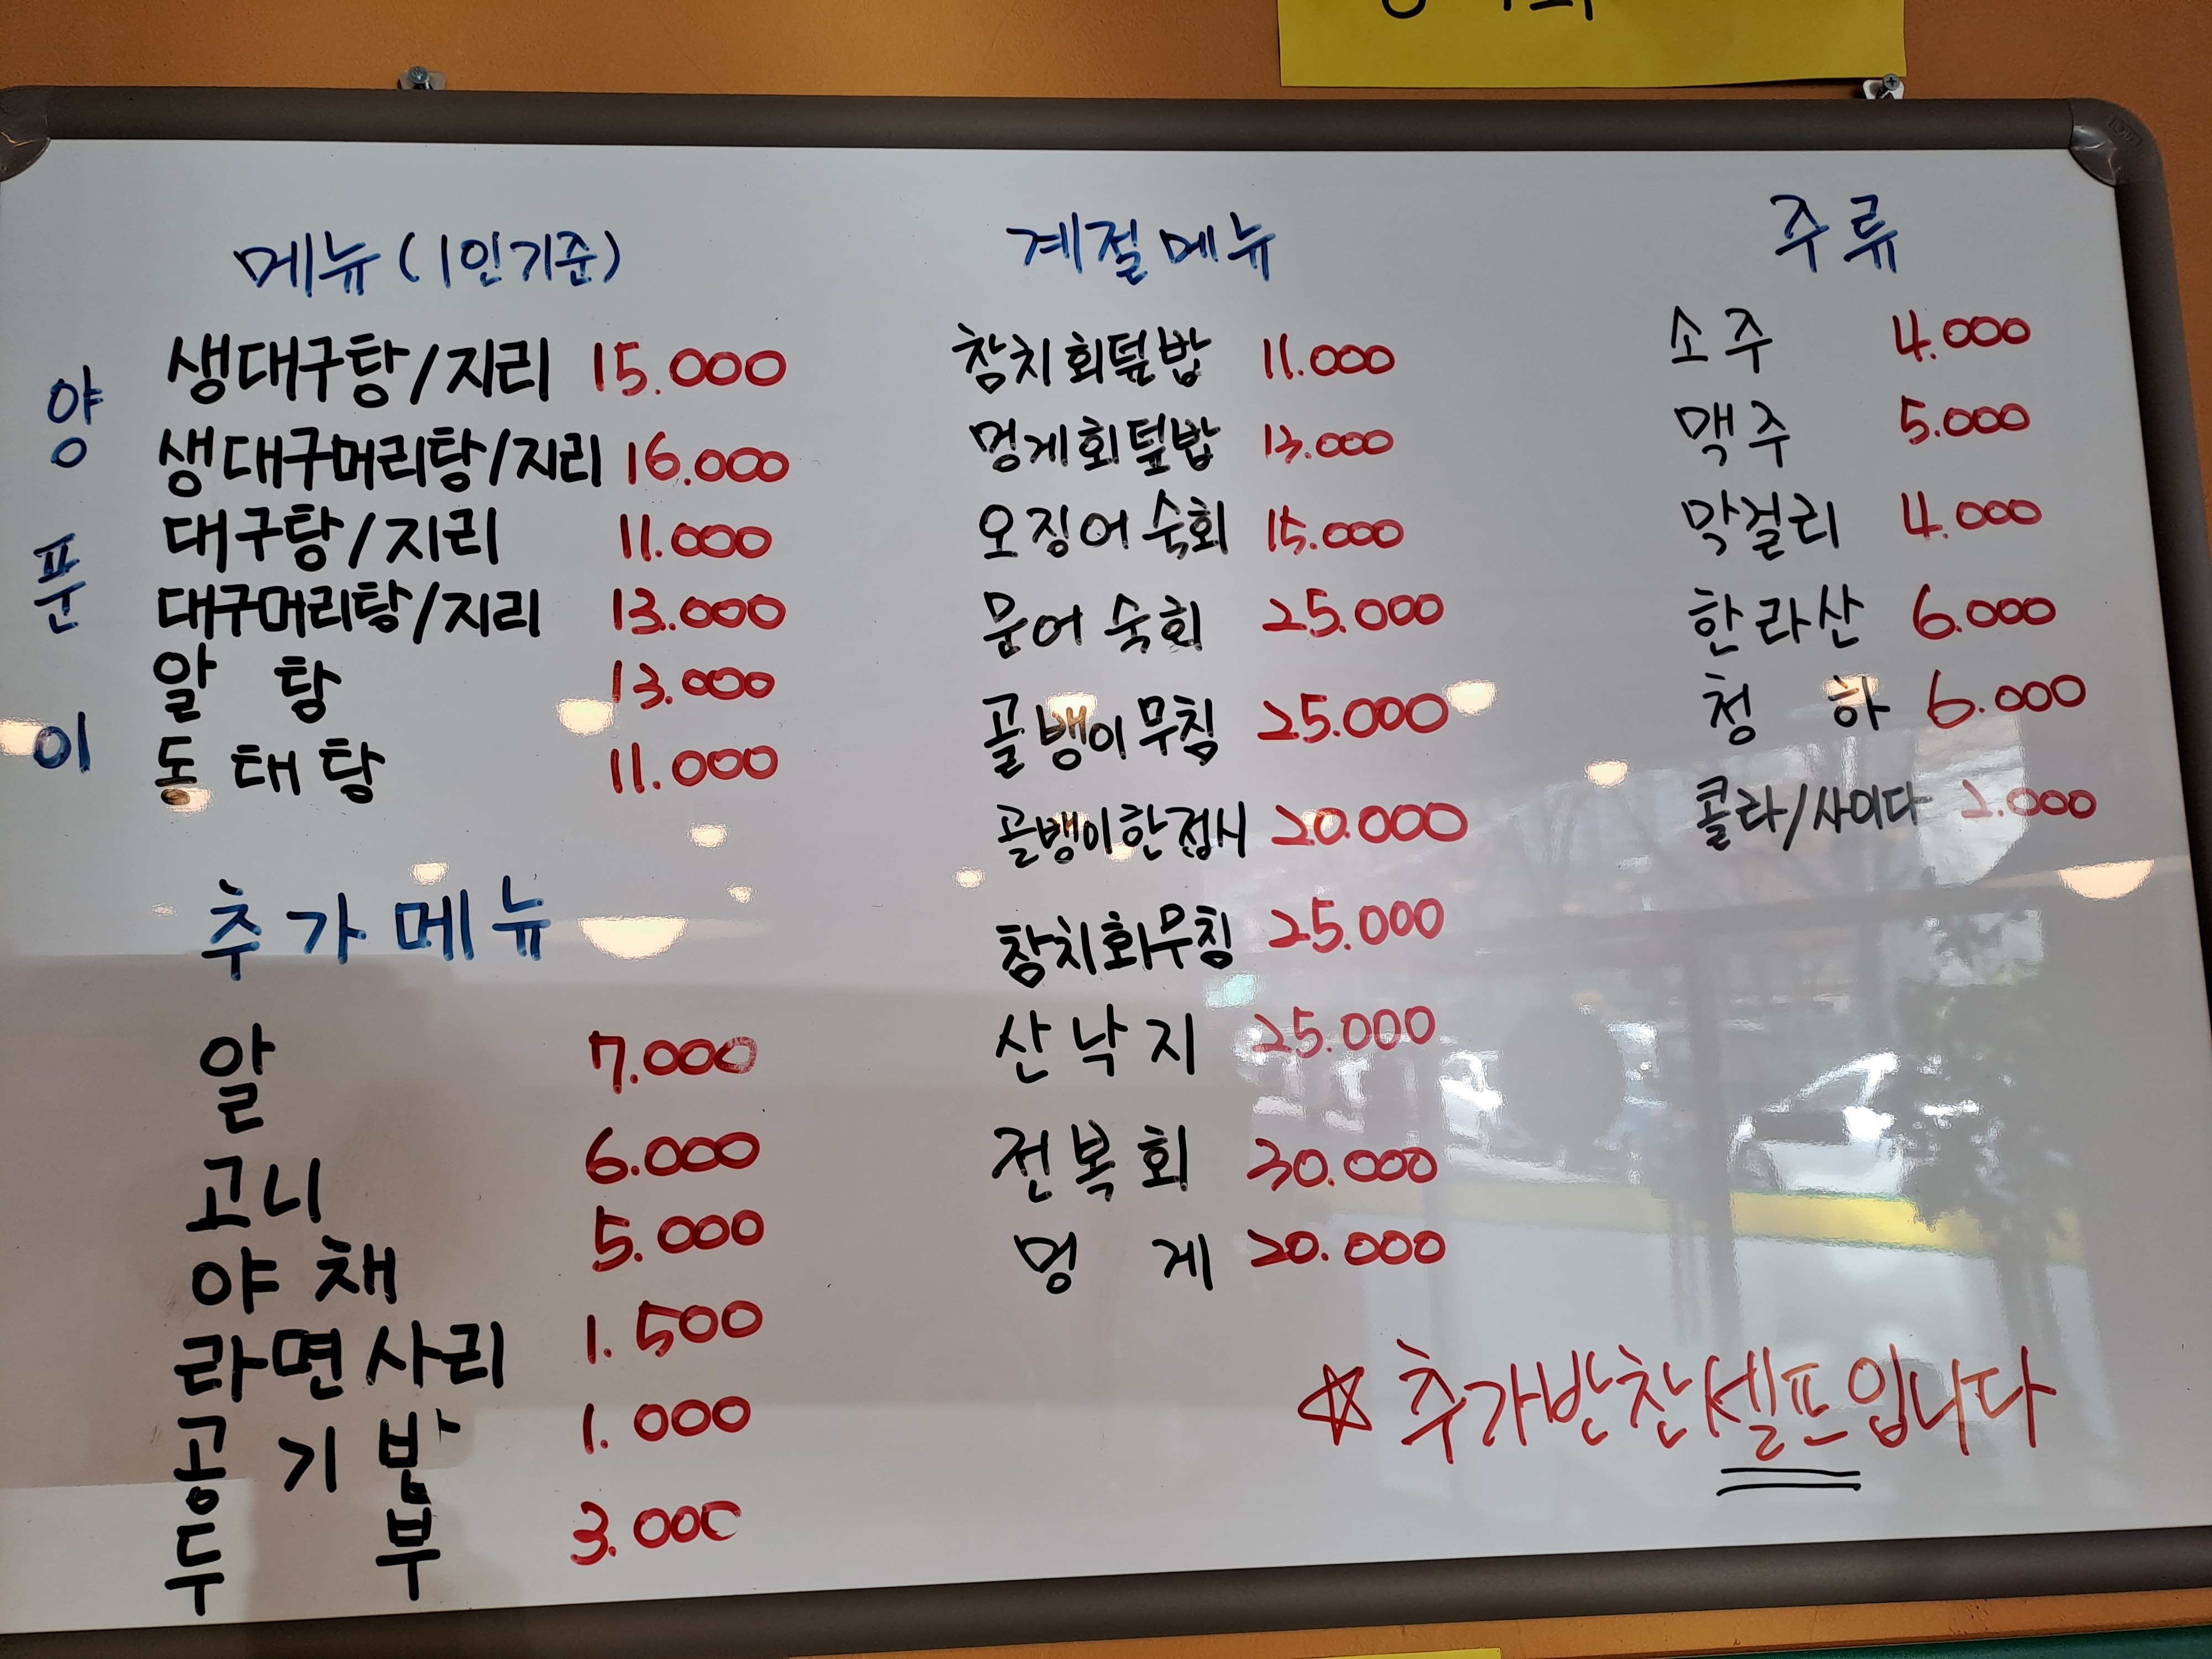 양푼이
메뉴(1인기준)
생대구탕/지리 15.000
생대구머리탕/지리 16.000
대구탕/지리 11.000
대구머리탕/지리 13.000
알 탕 13.000
동태탕 11.000
추가메뉴
알 7.000
고니 6.000
야채 5.000
라면사리 1.500
공기밥 1.000
두부 3.000
계절메뉴
참치회덮밥 11.000
멍게회덮밥 13.000
오징어숙회 15.000
문어숙회 25.000
골뱅이무침 25.000
골뱅이한접시 20.000
참치회무침 25.000
산낙지 25.000
전복회 30.000
멍게 20.000
주류
소주 4.000
맥주 5.000
막걸리 4.000
한라산 6.000
청하 6.000
콜라/사이다 2.000
☆추가반찬셀프입니다